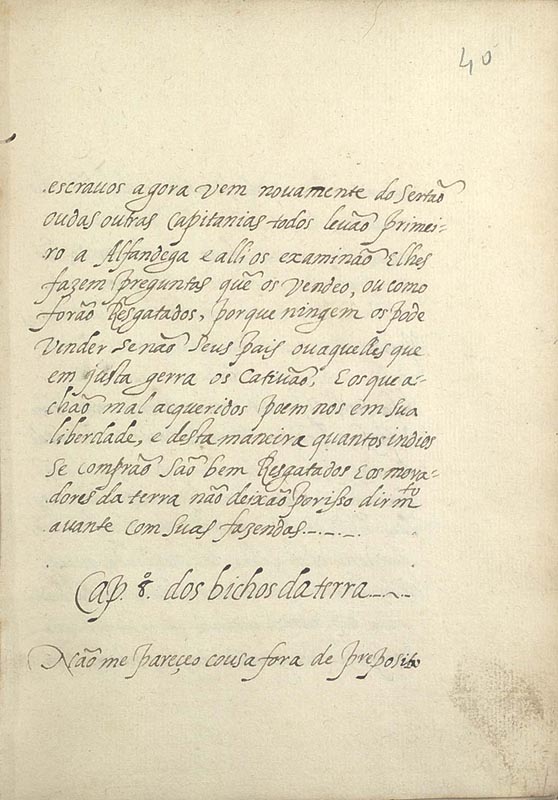 40
escravos agora vem novamente do Sertão
ou das outras Capitanias todos levão primei-
ro a Alfandega e alli os examinão E lhes
fazem preguntas quẽ os vendeo, ou como
forão Resgatados, porque ningem os pode
vender se não Seus pais ou aquelles que
em justa gerra os Cativão, E os que a-
chão mal acqueridos poem nos em Sua
liberdade, e desta maneira quantos indios
se comprão São bem Resgatados E os mora-
dores da terra não deixão por isso dir mto
avante com Suas fazendas
Cap. 8º. dos bichos da terra
Não me pareçeo cousa fora de preposito